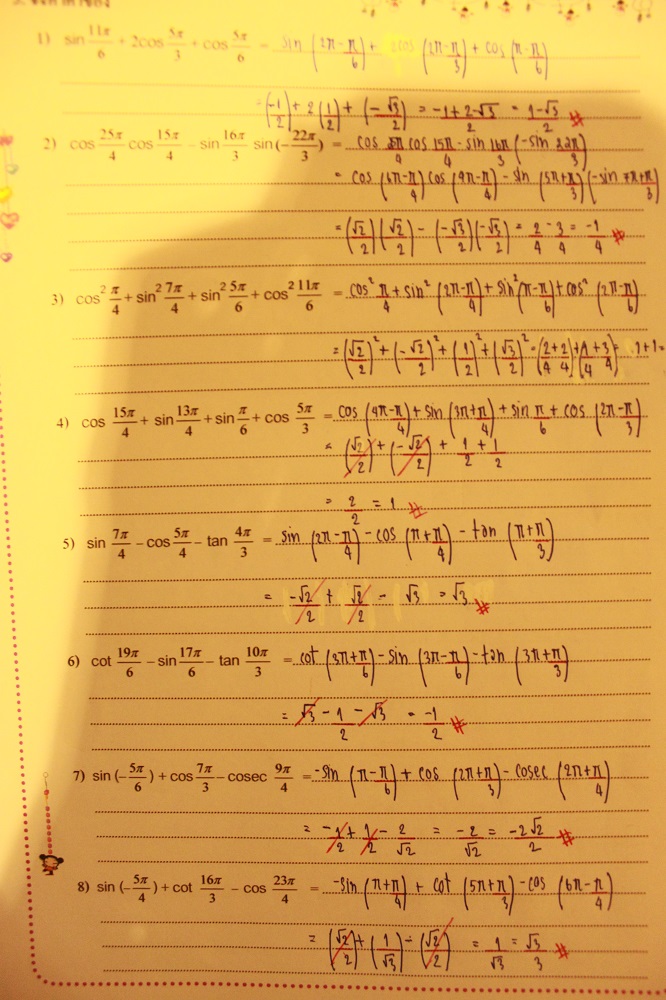 1) sin 11π/6 + 2cos 5π/3 + cos 5π/6 = sin (2π-π/6) + 2cos (2π-π/3) + cos (π-π/6)
= (-1/2) + 2(1/2) + (-√3/2) = -1+2-√3/2 = 1-√3/2 #
2) cos 25π/4 cos 15π/4 - sin 16π/3 sin(-22π/3) = cos 25π/4 cos 15π/4 - sin 16π/3 (-sin 22π/3)
= cos (6π+π/4) cos (4π-π/4) - sin (5π+π/3) (-sin 7π+π/3)
= (√2/2)(√2/2) - (-√3/2)(-√3/2) = 2/4 - 3/4 = -1/4 #
3) cos² π/4 + sin² 7π/4 + sin² 5π/6 + cos² 11π/6 = cos² π/4 + sin² (2π-π/4) + sin² (π-π/6) + cos² (2π-π/6)
= (√2/2)² + (-√2/2)² + (1/2)² + (√3/2)² = (2/4+2/4) + (1/4+3/4) = 1+1=
4) cos 15π/4 + sin 13π/4 + sin π/6 + cos 5π/3 = cos (4π-π/4) + sin (3π+π/4) + sin π/6 + cos (2π-π/3)
= (√2/2) + (-√2/2) + 1/2 + 1/2
= 2/2 = 1 #
5) sin 7π/4 - cos 5π/4 - tan 4π/3 = sin (2π-π/4) - cos (π+π/4) - tan (π+π/3)
= -√2/2 + √2/2 - √3 = √3 #
6) cot 19π/6 - sin 17π/6 - tan 10π/3 = cot (3π+π/6) - sin (3π-π/6) - tan (3π+π/3)
= √3 - 1/2 - √3 = -1/2 #
7) sin (-5π/6) + cos 7π/3 - cosec 9π/4 = -sin (π-π/6) + cos (2π+π/3) - cosec (2π+π/4)
= -1/2 + 1/2 - 2/√2 = -2/√2 = -2√2/2 #
8) sin (-5π/4) + cot 16π/3 - cos 23π/4 = -sin (π+π/4) + cot (5π+π/3) - cos (6π-π/4)
= (√2/2) + (1/√3) - (√2/2) = 1/√3 = √3/3 #